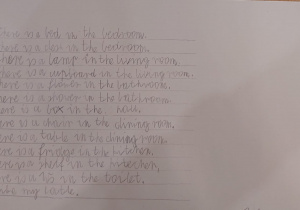 There is a bed in the bedroom.
here is a door in the bedroom.
here is a lamp in the living room.
here is a cupboard in the living room.
here is a in the bathroom.
here is a shower in the bathroom.
here is a box in the hall.
ere is a chair in the dining room.
ere is a table in the dining room.
ere is a fridge in the kitchen.
ere is a shelf in the kitchen.
ere is a in the toilet.
my